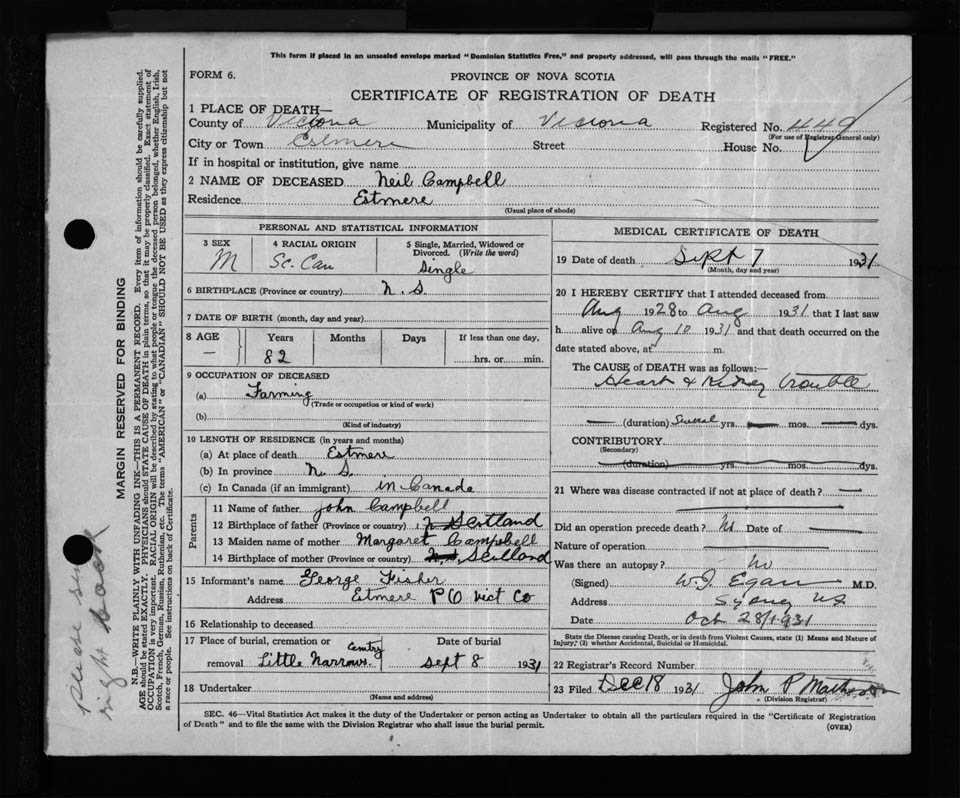 This form if placed in an unsealed envelope marked "Dominion Statistics Free," and properly addressed, will pass through the mails "FREE."
FORM 6.
PROVINCE OF NOVA SCOTIA
CERTIFICATE OF REGISTRATION OF DEATH
1 PLACE OF DEATH—
County of Victoria Municipality of Victoria Registered No. 449
(For use of Registrar General only)
City or Town Estmere Street House No.
If in hospital or institution, give name
2 NAME OF DECEASED Neil Campbell
Residence Estmere
(Usual place of abode)
PERSONAL AND STATISTICAL INFORMATION
3 SEX 4 RACIAL ORIGIN 5 Single, Married, Widowed or Divorced. (Write the word)
M Sc. Can Single
6 BIRTHPLACE (Province or country) N. S.
7 DATE OF BIRTH (month, day and year)
8 AGE Years Months Days If less than one day,
— 82 hrs. or min.
9 OCCUPATION OF DECEASED
(a) Farming
(Trade or occupation or kind of work)
(b)
(Kind of industry)
10 LENGTH OF RESIDENCE (in years and months)
(a) At place of death Estmere
(b) In province N. S.
(c) In Canada (if an immigrant) in Canada
Parents
11 Name of father John Campbell
12 Birthplace of father (Province or country) Scotland
13 Maiden name of mother Margaret Campbell
14 Birthplace of mother (Province or country) N.S. Scotland
15 Informant's name George Fisher
Address Estmere P O Vict Co
16 Relationship to deceased
17 Place of burial, cremation or Date of burial
removal Little Narrows Cemtry Sept 8 1931
18 Undertaker
(Name and address)
MEDICAL CERTIFICATE OF DEATH
19 Date of death Sept 7 1931
(Month, day and year)
20 I HEREBY CERTIFY that I attended deceased from
Aug 1928 to Aug 1931 that I last saw
h alive on Aug 10 1931 and that death occurred on the
date stated above, at m.
The CAUSE of DEATH was as follows:—
Heart & Kidney trouble
— (duration) Several yrs. — mos. — dys.
CONTRIBUTORY
(Secondary)
(duration) yrs. mos. dys.
21 Where was disease contracted if not at place of death? —
Did an operation precede death? No Date of —
Nature of operation —
Was there an autopsy? No
(Signed) W. J. Egan M.D.
Address Sydney NS
Date Oct 28/1931
State the Disease causing Death, or in death from Violent Causes, state (1) Means and Nature of
Injury; (2) whether Accidental, Suicidal or Homicidal.
22 Registrar's Record Number
23 Filed Dec 18 1931 John P Matheson
(Division Registrar)
SEC. 46—Vital Statistics Act makes it the duty of the Undertaker or person acting as Undertaker to obtain all the particulars required in the "Certificate of Registration
of Death" and to file the same with the Division Registrar who shall issue the burial permit.
(OVER)
MARGIN RESERVED FOR BINDING
N.B.—WRITE PLAINLY WITH UNFADING INK—THIS IS A PERMANENT RECORD. Every item of information should be carefully supplied.
AGE should be stated EXACTLY. PHYSICIANS should STATE CAUSE OF DEATH in plain terms, so that it may be properly classified. Exact statement of
OCCUPATION is very important. RACIAL ORIGIN will be described by stating to what people or tongue the deceased person belonged, whether English, Irish,
Scotch, French, German, Russian, Ruthenian, etc. The terms "AMERICAN" or "CANADIAN" SHOULD NOT BE USED as they express citizenship but not
a race or people. See instructions on back of Certificate.
please sign
right back